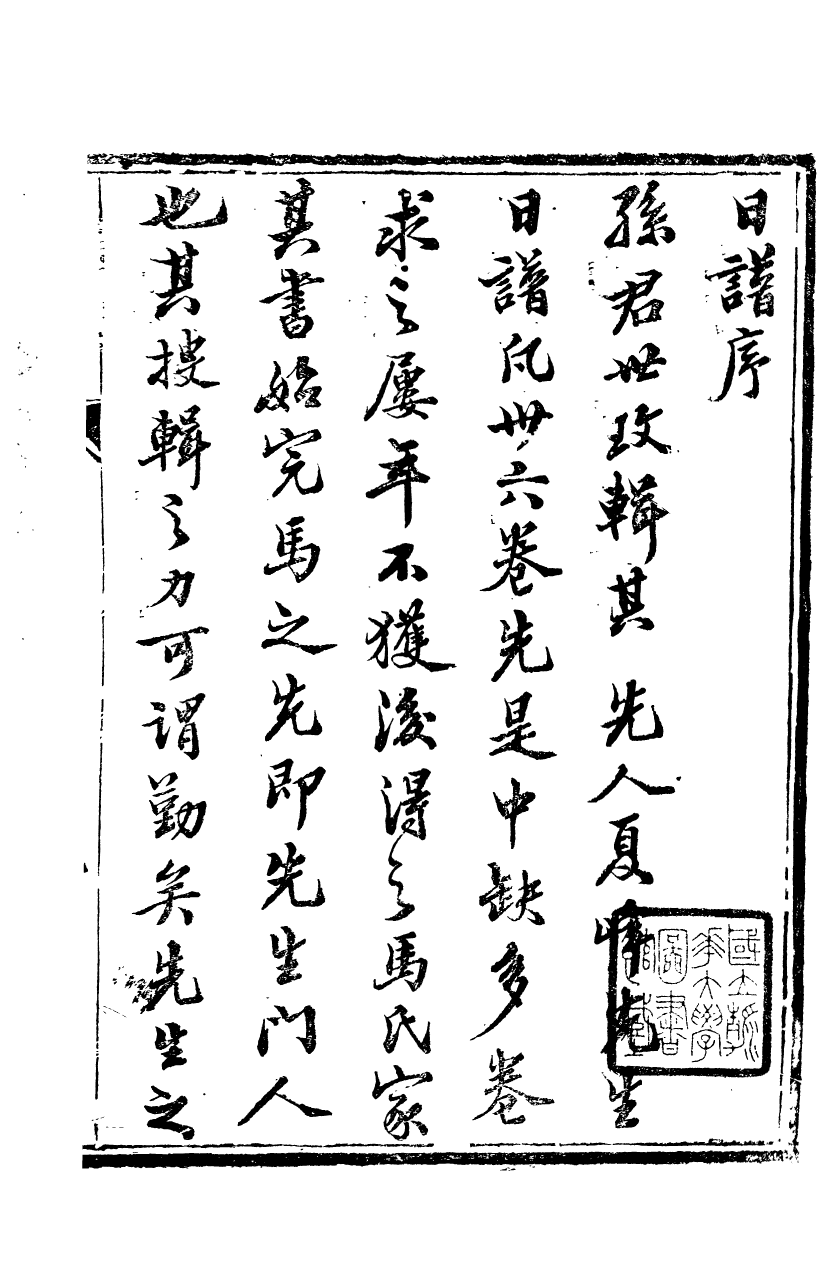 日譜序
孫君世玫輯其 先人夏峰先生
日譜凡卅六卷先是中缺多卷
求之屢年不獲後得之馬氏家
其書始完馬之先即先生門人
也其搜輯之力可謂勤矣先生之
國立清華大學圖書館藏